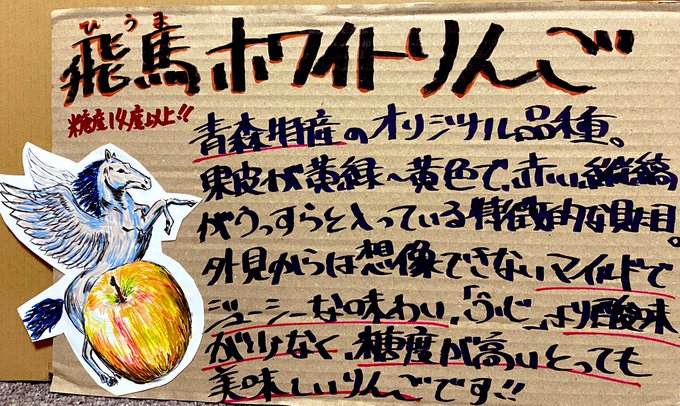 ひうま
飛馬ホワイトりんご
糖度14度以上!!
青森特産のオリジナル品種。
果皮が黄緑〜黄色で、赤い縦縞
がうっすらと入っている特徴的な見た目。
外見からは想像できないマイルドで
ジューシーな味わい、「ふじ」より酸味
が少なく、糖度が高いとっても
美味しいりんごです!!